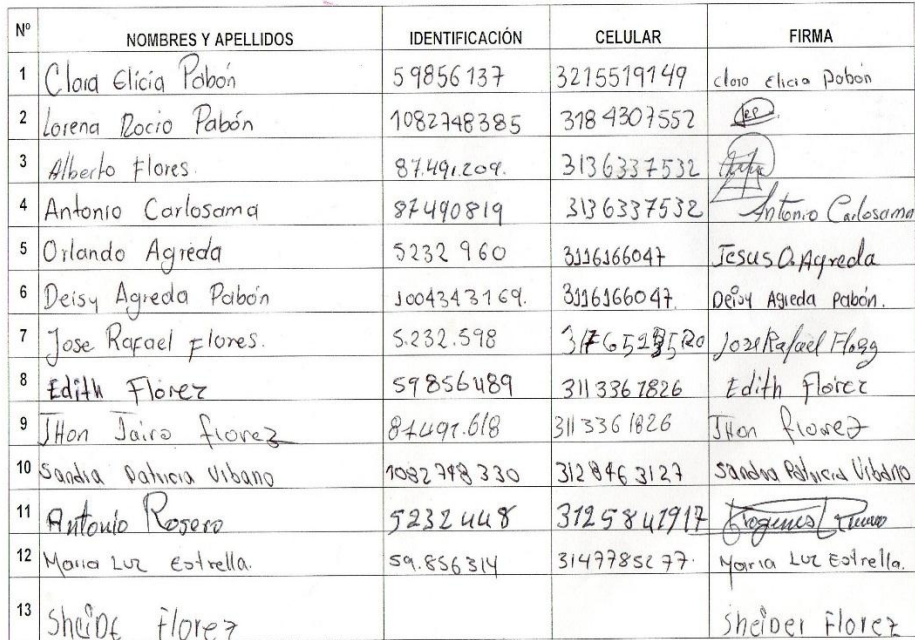 Nº NOMBRES Y APELLIDOS IDENTIFICACIÓN CELULAR FIRMA
1 Clara Elicia Pabón 59856137 3215519149 Clara Elicia Pabón
2 Lorena Rocio Pabón 1082748385 3184307552
3 Alberto Flores. 87.491.209. 3136337532
4 Antonio Carlosama 87490819 3136337532 Antonio Carlosama
5 Orlando Agreda 5232 960 3116166047 Jesus O. Agreda
6 Deisy Agreda Pabón 1004343169. 3116166047. Deisy Agreda Pabón.
7 Jose Rafael Flores. 5.232.598 Jose Rafael
8 Edith Florez 59856489 3113361826 Edith Florez
9 JHon Jairo florez 87491.618 3113361826 JHon florez
10 Sandra Patricia Urbano 1082748330 312 846 3127 Sandra Patricia Urbano
11 Antonio Rosero 5232448 3125841917
12 Maria Luz Estrella. 59.856314 3147785277. Maria Luz Estrella.
13 Sheide Florez Sheider Florez